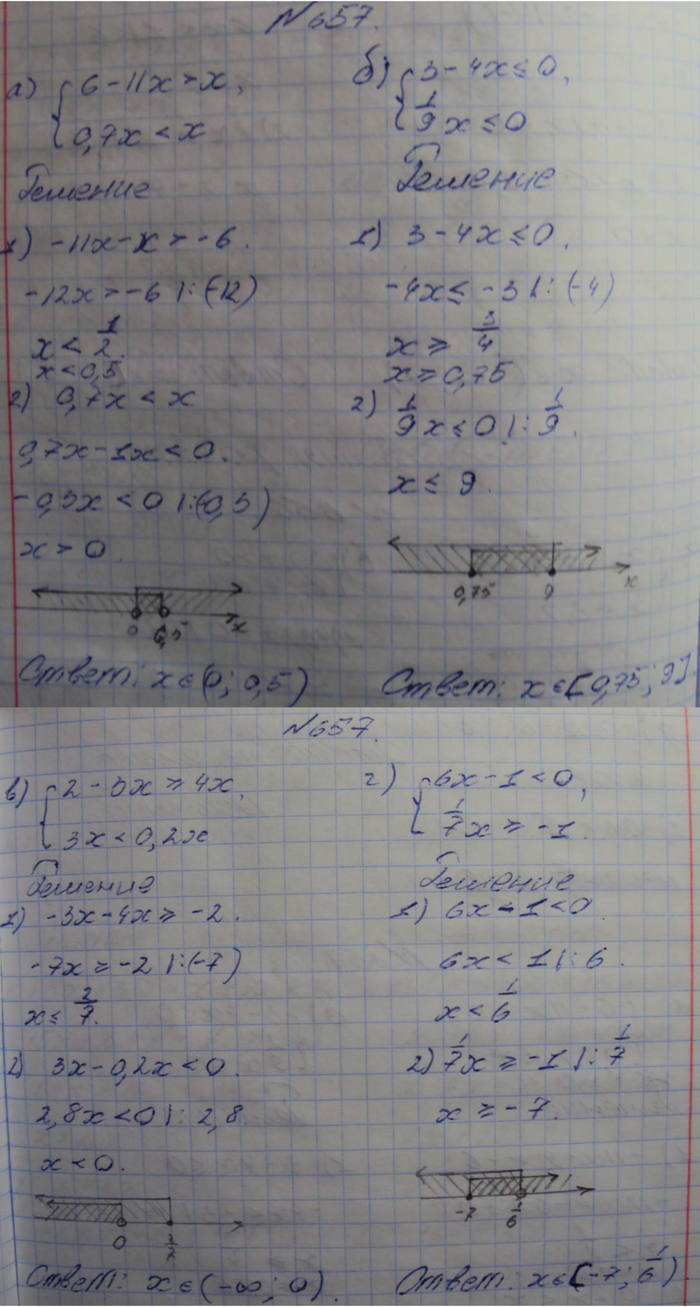 №657.
а) { 6 - 11x > x,
0,7x < x
Решение
1) -11x - x > -6.
-12x > -6 |:(-12)
x < 1/2.
x < 0,5
2) 0,7x < x
0,7x - 1x < 0.
-0,3x < 0 |:(0,3)
x > 0.
0 0,5 x
Ответ: x ∈ (0; 0,5)
б) { 3 - 4x ≤ 0,
1/9 x ≤ 0
Решение
1) 3 - 4x ≤ 0,
-4x ≤ -3 |: (-4)
x ≥ 3/4
x ≥ 0,75
2) 1/9 x ≤ 0 |: 1/9.
x ≤ 9.
0,75 9 x
Ответ: x ∈ [0,75; 9].
№657.
в) { 2 - 3x ≥ 4x,
3x < 0,2x
Решение
1) -3x - 4x ≥ -2.
-7x ≥ -2 |:(-7)
x ≤ 2/7.
2) 3x - 0,2x < 0.
2,8x < 0 |: 2,8
x < 0.
0 2/7
Ответ: x ∈ (-∞; 0).
г) { 6x - 1 < 0,
1/7 x ≥ -1.
Решение
1) 6x - 1 < 0.
6x < 1 |: 6.
x < 1/6
2) 1/7 x ≥ -1 |: 1/7
x ≥ -7.
-7 1/6
Ответ. x ∈ [-7; 1/6)